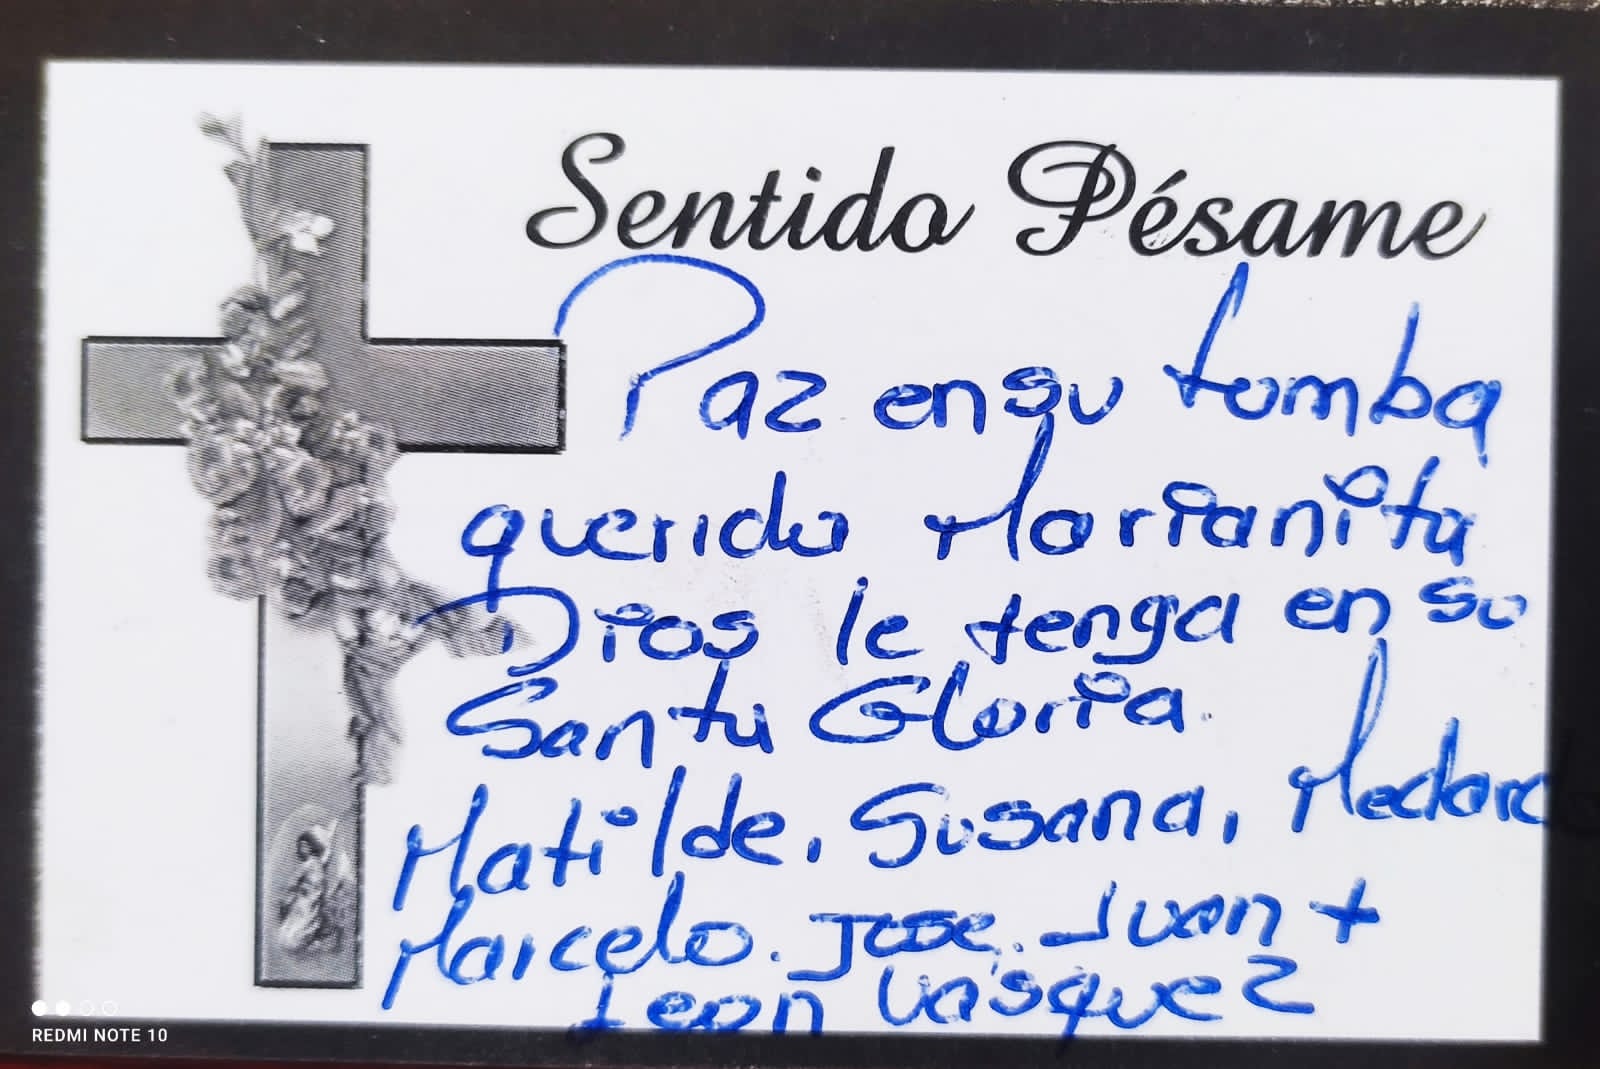 Sentido Pésame
Paz en su tomba
querida Marianita
Dios le tenga en su
Santa Gloria.
Matilde, Susana, Medard
Marcelo. Jose. Juan +
Leon Vasquez
REDMI NOTE 10